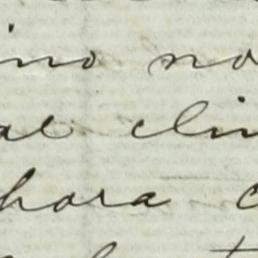 ino no
al clin
hora c